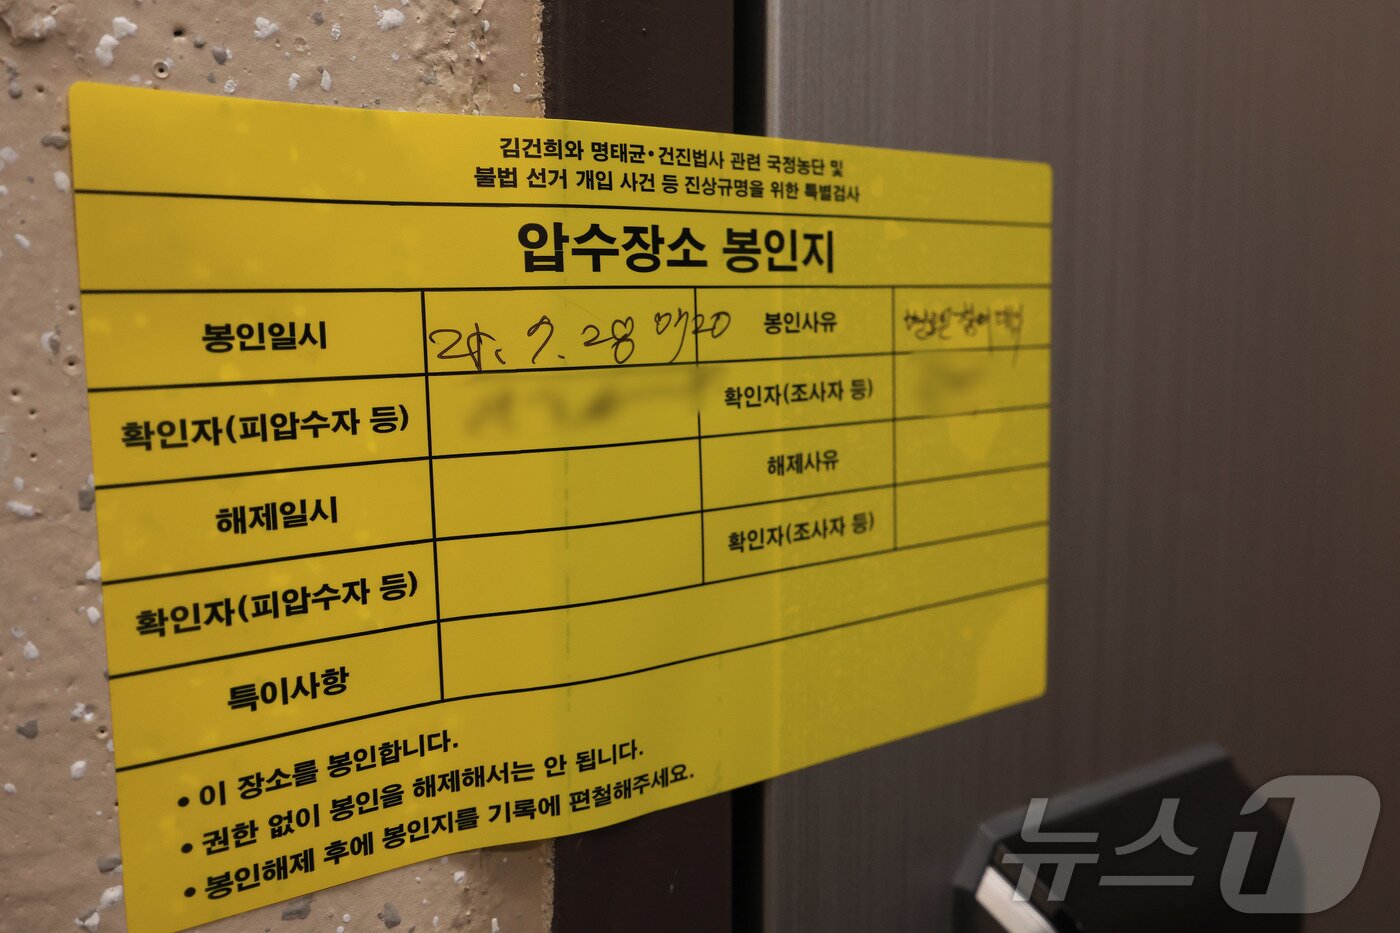 김건희와 명태균·건진법사 관련 국정농단 및
불법 선거 개입 사건 등 진상규명을 위한 특별검사
압수장소 봉인지
봉인일시 25. 7. 28 07:20 봉인사유 변호인 참여 대기
확인자(피압수자 등) 확인자(조사자 등)
해제일시 해제사유
확인자(피압수자 등) 확인자(조사자 등)
특이사항
• 이 장소를 봉인합니다.
• 권한 없이 봉인을 해제해서는 안 됩니다.
• 봉인해제 후에 봉인지를 기록에 편철해주세요.
뉴스1